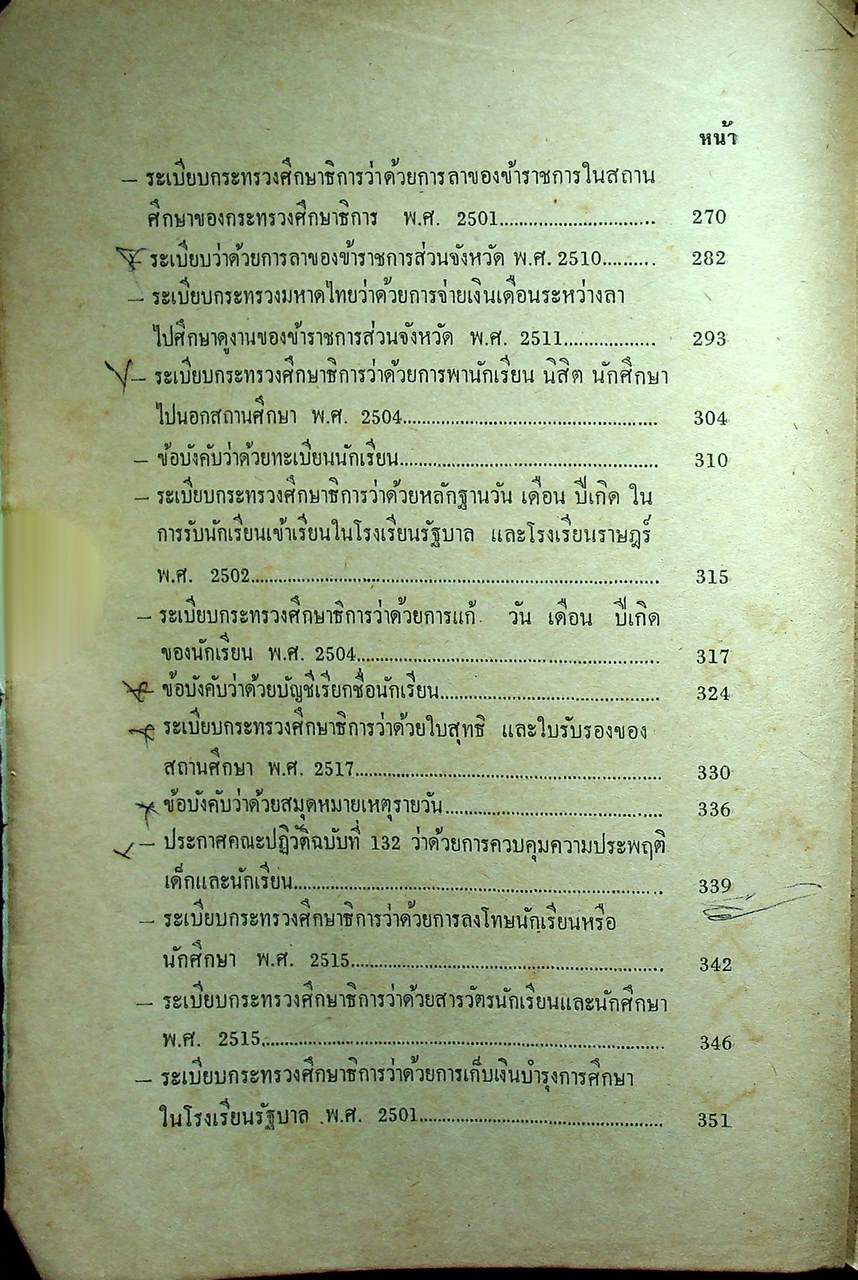 หน้า
— ระเบียบกระทรวงศึกษาธิการว่าด้วยการลาของข้าราชการในสถาน
ศึกษาของกระทรวงศึกษาธิการ พ.ศ. 2501............................. 270
ระเบียบว่าด้วยการลาของข้าราชการส่วนจังหวัด พ.ศ. 2510.......... 282
— ระเบียบกระทรวงมหาดไทยว่าด้วยการจ่ายเงินเดือนระหว่างลา
ไปศึกษาดูงานของข้าราชการส่วนจังหวัด พ.ศ. 2511.................. 293
— ระเบียบกระทรวงศึกษาธิการว่าด้วยการพานักเรียน นิสิต นักศึกษา
ไปนอกสถานศึกษา พ.ศ. 2504.................................................. 304
— ข้อบังคับว่าด้วยทะเบียนนักเรียน.................................................. 310
— ระเบียบกระทรวงศึกษาธิการว่าด้วยหลักฐานวัน เดือน ปีเกิด ใน
การรับนักเรียนเข้าเรียนในโรงเรียนรัฐบาล และโรงเรียนราษฎร์
พ.ศ. 2502................................................................................ 315
— ระเบียบกระทรวงศึกษาธิการว่าด้วยการแก้ วัน เดือน ปีเกิด
ของนักเรียน พ.ศ. 2504............................................................ 317
— ข้อบังคับว่าด้วยบัญชีเรียกชื่อนักเรียน.......................................... 324
— ระเบียบกระทรวงศึกษาธิการว่าด้วยใบสุทธิ และใบรับรองของ
สถานศึกษา พ.ศ. 2517............................................................ 330
— ข้อบังคับว่าด้วยสมุดหมายเหตุรายวัน.......................................... 336
— ประกาศคณะปฏิวัติฉบับที่ 132 ว่าด้วยการควบคุมความประพฤติ
เด็กและนักเรียน........................................................................ 339
— ระเบียบกระทรวงศึกษาธิการว่าด้วยการลงโทษนักเรียนหรือ
นักศึกษา พ.ศ. 2515............................................................ 342
— ระเบียบกระทรวงศึกษาธิการว่าด้วยสารวัตรนักเรียนและนักศึกษา
พ.ศ. 2515.............................................................................. 346
— ระเบียบกระทรวงศึกษาธิการว่าด้วยการเก็บเงินบำรุงการศึกษา
ในโรงเรียนรัฐบาล พ.ศ. 2501................................................ 351